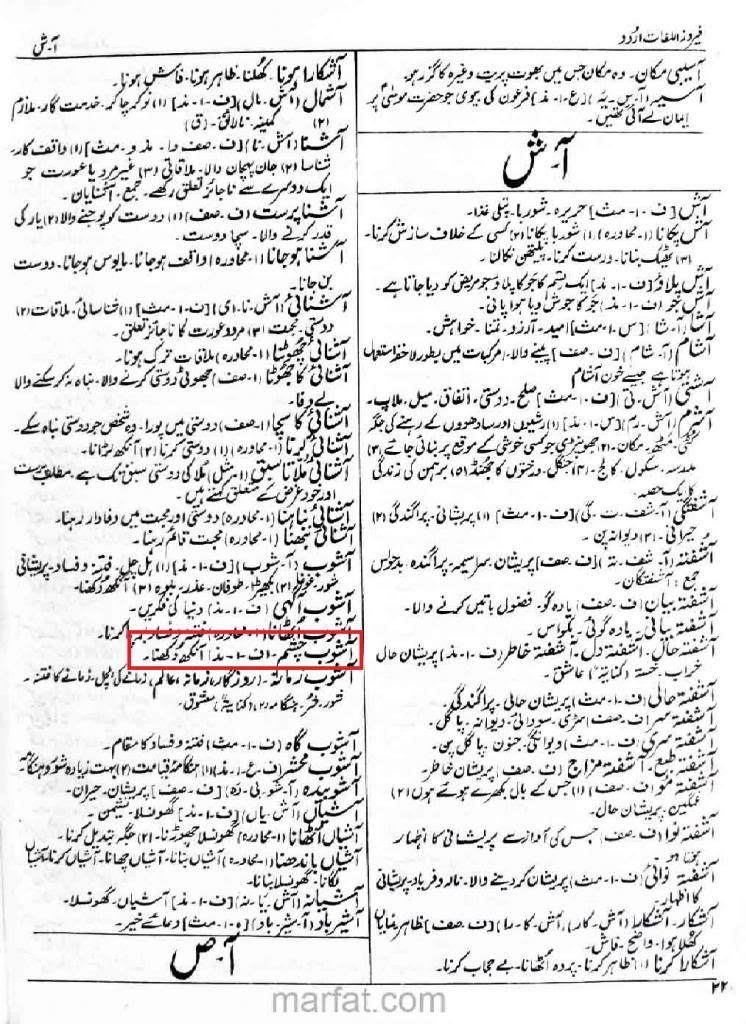 فیروز اللغات اردو
آ۔ش
آسیبی مکان۔ وہ مکان جس میں بھوت پریت وغیرہ کا گزر ہو
آسیہ (آ۔س۔یہ) [ع۔ا۔مذ] فرعون کی بیوی جو حضرت موسیٰؑ پر
ایمان لے آئی تھیں۔
آ۔ش
آش [ف۔ا۔مث] حریرہ۔ شوربا۔ پتلی غذا۔
آش پکانا (ا۔محاورہ) (۱) شوربا پکانا (۲) کسی کے خلاف سازش کرنا۔
(۳) ٹھیک بنانا۔ درست کرنا۔ پلیتھن نکالنا۔
آش پلاؤ (ف۔ا۔مذ) ایک قسم کا جو کا پلاؤ جو مریض کو دیا جاتا ہے۔
آش جو (ف۔ا۔مذ) جو کا جوش دیا ہوا پانی۔
آشا (آ۔شا) [س۔ا۔مث] امید۔ آرزو۔ تمنا۔ خواہش۔
آشام (آ۔شام) [ف۔صف] پینے والا۔ مرکبات میں بطور لاحقہ استعمال
ہوتا ہے جیسے خون آشام
آشتی (آش۔تی) [ف۔ا۔مث] صلح۔ دوستی۔ اتفاق۔ میل۔ ملاپ۔
آشرم (آش۔رم) [س۔ا۔مذ] (۱) رشیوں اور سادھوؤں کے رہنے کی جگہ
کٹی۔ مٹھ۔ مکان۔ (۲) جھونپڑی جو کسی خوشی کے موقع پر بنائی جائے (۳)
مدرسہ۔ سکول۔ کالج۔ (۴) جنگل۔ درختوں کا جھنڈ (۵) برہمن کی زندگی
کا ایک حصہ۔
آشفتگی (آ۔شف۔ت۔گی) [ف۔ا۔مث] (۱) پریشانی۔ پراگندگی (۲)
حیرانی۔ (۳) دیوانہ پن۔
آشفتہ (آ۔شف۔تہ) [ف۔صف] پریشان۔ سراسیمہ۔ پراگندہ۔ بدحواس
جمع: آشفتگان۔
آشفتہ بیان (ف۔صف) یاوہ گو۔ فضول باتیں کرنے والا۔
آشفتہ بیانی۔ یاوہ گوئی۔ بکواس۔
آشفتہ حال۔ آشفتہ دل۔ آشفتہ خاطر (ف۔ا۔مذ) پریشان حال
خراب۔ خستہ (کنایۃً) عاشق۔
آشفتہ حالی (ف۔ا۔مث) پریشان حالی۔ پراگندگی۔
آشفتہ سر (ف۔صف) سڑی۔ سودائی۔ دیوانہ۔ پاگل۔
آشفتہ سری (ف۔ا۔مث) دیوانگی۔ جنون۔ پاگل پن۔
آشفتہ طبع۔ آشفتہ مزاج (ف۔صف) پریشان خاطر۔
آشفتہ مو (ف۔صف) (۱) جس کے بال بکھرے ہوئے ہوں (۲)
غمگین۔ پریشان حال۔
آشفتہ نوا (ف۔صف) جس کی آواز سے پریشانی کا اظہار
ہوتا ہو
آشفتہ نوائی (ف۔ا۔مث) پریشان کر دینے والا۔ نالہ و فریاد۔ پریشانی
کا اظہار۔
آشکار۔ آشکارا (آش۔کار) (آش۔کا۔را) [ف۔صف] ظاہر۔ نمایاں
کھلا ہوا۔ واضح۔ فاش۔
آشکارا کرنا (ا) ظاہر کرنا۔ پردہ اٹھانا۔ بے حجاب کرنا۔
آشکارا ہونا۔ کھلنا۔ ظاہر ہونا۔ فاش ہونا۔
آشمال (آش۔مال) [ف۔ا۔مذ] (۱) نوکر چاکر۔ خدمت گار۔ ملازم
(۲) کمینہ۔ نالائق۔ (ق)
آشنا (آش۔نا) [ف۔صف و ا۔مذ و مث] (۱) واقف کار۔
شناسا (۲) جان پہچان والا۔ ملاقاتی (۳) غیر مرد یا عورت جو
ایک دوسرے سے ناجائز تعلق رکھے۔ جمع۔ آشنایان۔
آشنا پرست (ف۔صف) (۱) دوست کو پوجنے والا (۲) یار کی
قدر کرنے والا۔ سچا دوست۔
آشنا ہو جانا (ا۔محاورہ) واقف ہو جانا۔ مایوس ہو جانا۔ دوست
بن جانا۔
آشنائی (آش۔نا۔ای) [ف۔ا۔مث] (۱) شناسائی۔ ملاقات (۲)
دوستی۔ محبت (۳) مرد و عورت کا ناجائز تعلق۔
آشنائی چھوٹنا (ا۔محاورہ) ملاقات ترک ہونا۔
آشنائی کا جھوٹا (ا۔صف) جھوٹی دوستی کرنے والا۔ نباہ نہ کر سکنے والا
بے وفا۔
آشنائی کا سچا (ا۔صف) دوستی میں پورا۔ وہ شخص جو دوستی نباہ سکے۔
آشنائی کرنا (ا۔محاورہ) (۱) دوستی کرنا (۲) آنکھ لڑانا۔
آشنائی ملا تا سبق (ا۔مثل) ملا کی دوستی سبق تک ہے۔ مطلب پرست
اور خود غرض کے متعلق کہتے ہیں۔
آشنائی نباہنا (ا۔محاورہ) دوستی اور محبت میں وفادار رہنا۔
آشنائی نبھنا (ا۔محاورہ) محبت قائم رہنا۔
آشوب (آ۔شوب) [ف۔ا۔مذ] (۱) ہل چل۔ فتنہ و فساد۔ پریشانی
شور۔ غوغا (۲) بکھیڑا۔ طوفان۔ غدر۔ بلوہ (۳) آنکھ دکھنا۔
آشوب آگہی (ف۔ا۔مذ) دنیا کی فکریں۔
آشوب اٹھانا (ا۔محاورہ) فتنہ و فساد برپا کرنا۔
آشوب چشم۔ (ف۔ا۔مذ) آنکھ دکھنا۔
آشوب زمانہ۔ (روزگار، زمانہ، عالم) زمانے کی ہلچل۔ زمانے کا فتنہ۔
شور۔ فخر۔ ہنگامہ (۲) (کنایۃً) معشوق۔
آشوب گاہ (ف۔ا۔مث) فتنہ و فساد کا مقام۔
آشوب محشر (ف۔ع۔ا۔مذ) (۱) ہنگامۂ قیامت (۲) بہت زیادہ شور و ہنگامہ۔
آشوبیدہ (آ۔شو۔بی۔دہ) [ف۔صف] پریشان۔ حیران۔
آشیاں (آش۔یاں) [ف۔ا۔مذ] گھونسلا۔ نشیمن۔
آشیاں اٹھانا (ا۔محاورہ) گھونسلا چھوڑنا۔ (۲) جگہ تبدیل کرنا۔
آشیاں باندھنا (ا۔محاورہ) آشیاں بنانا۔ آشیاں چھانا۔ آشیاں کرنا۔ آشیاں
لگانا۔ گھونسلا بنانا۔
آشیانہ (آش۔یا۔نہ) [ف۔ا۔مذ] آشیاں۔ گھونسلا۔
آشیرباد (آ۔شیر۔باد) [ہ۔ا۔مث] دعائے خیر۔
آ۔ص
۲۲
marfat.com